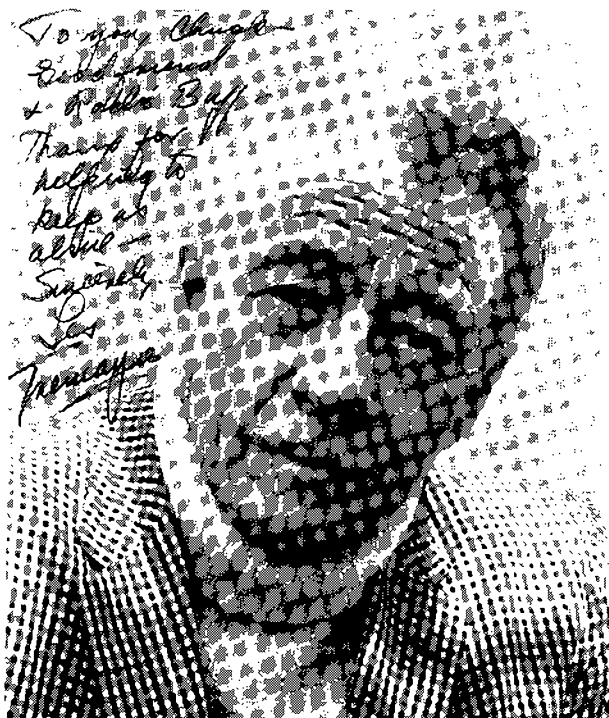 To you, Chuck -
Good friend
& Radio Buff -
Thanks for
helping to
keep us
alive -
Sincerely
Les
Tremayne